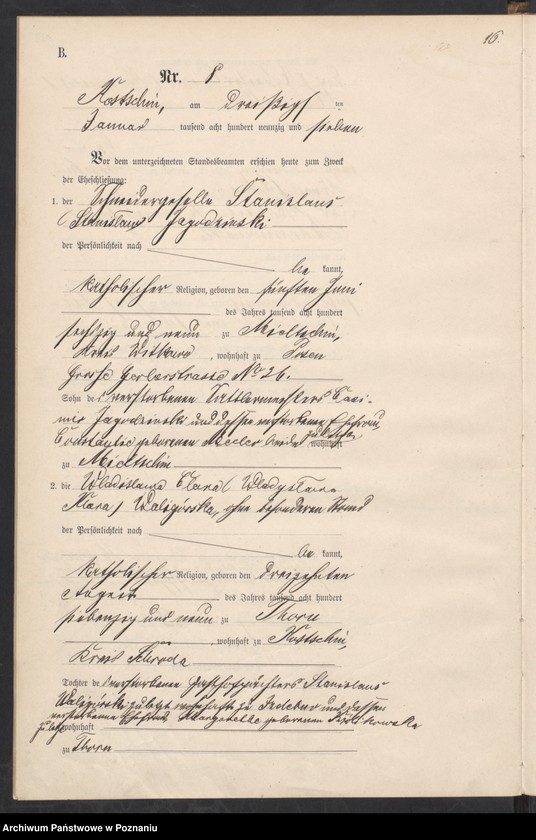 16.
B.
Nr. 8
Kostschin, am dreißigsten
Januar tausend acht hundert neunzig und sieben
Vor dem unterzeichneten Standesbeamten erschien heute zum Zweck
der Eheschließung:
1. der Schneidergeselle Stanislaus
(Stanislaus) Jagodzinski
der Persönlichkeit nach
be kannt,
katholischer Religion, geboren den fünften Juni
des Jahres tausend acht hundert
sechszig und neun zu Mieltschin,
Kreis Witkowo, wohnhaft zu Posen
Große Gerberstrasse No 26.
Sohn des verstorbenen Sattlermeisters Casi-
mir Jagodzinski und dessen verstorbene Ehefrau
Constantie geborenen zuletzt wohnhaft
zu Mieltschin
2. die Wladislawa Clara (Wladyslawa
Klara) Waligorska, ohne besonderen Stand
der Persönlichkeit nach
be kannt,
katholischer Religion, geboren den dreizehnten
August des Jahres tausend acht hundert
siebenzig und neun zu Thorn
, wohnhaft zu Kostschin,
Kreis Schroda
Tochter des verstorbenen Gasthofpächters Stanislaus
Waligorski zuletzt wohnhaft zu und dessen
verstorbene Ehefrau geborenen
zuletzt wohnhaft
zu Thorn
Archiwum Państwowe w Poznaniu